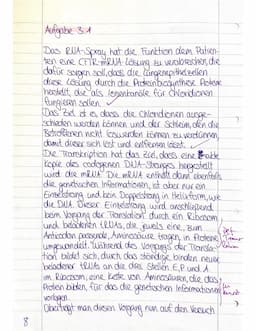 Aufgabe 3.1
Das RNA-Spray hat die Funktion dem Patien-
ten eine CFTR-mRNA-Lösung zu verabreichen, die
dafür sorgen soll, dass die Lungenepithelzellen
diese Lösung durch die Proteinbiosynthese Proteine
herstellt, die als Ionenkanäle für Chloridionen
fungieren sollen.
Das Ziel ist es dass die Chloridionen ausge-
schieden werden können und der Schleim, den die
Betroffenen nicht loswerden können zu verdünnen,
damit dieser sich löst und entfernen lässt.
Die Transkription hat das Ziel, dass eine
Kopie des codogenen DNA-Stranges hergestellt
wird die mRNA. Die mRNA enthält dann ebenfalls
die genetischen Informationen, ist aber nur ein
Einzelstrang und kein Doppelstrang in Helixform, wie
die DNA. Dieser Einzelstrang wird anschließend
beim Vorgang der Translation durch ein Ribosom
und beladenen tRNAs, die jeweils eine, zum
Anticodon passende, Aminosäure tragen, in Proteine
umgewandelt. Während des Vorgangs der Transla-
tion bildet sich, durch das ständige binden neuer
beladener tRNAs an die drei Stellen E, P und A
im Ribosom, eine Kette von Aminosäuren, die das
Protein bilden, für das die genetischen Informationen
vorlagen.
Überträgt man diesen Vorgang nun auf den Versuch
8